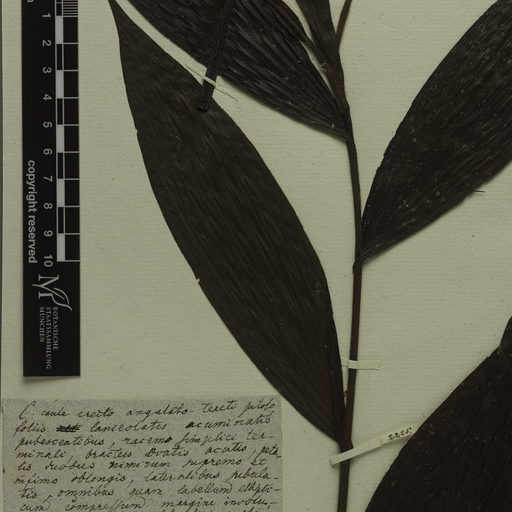 1
2
3
4
5
6
7
8
9
10
copyright reserved
BOTANISCHE
STAATSSAMMLUNG
MÜNCHEN
C. caule erecto angulato-tereti piloso
foliis lanceolatis acuminatis
pubescentibus, racemo simplici ter-
minali, bracteis ovatis acutis, peta-
lis duobus nimirum supremo et
infimo oblongis, lateralibus subula-
tis, omnibus quam labellum ellipti-
cum compressum margine involu-